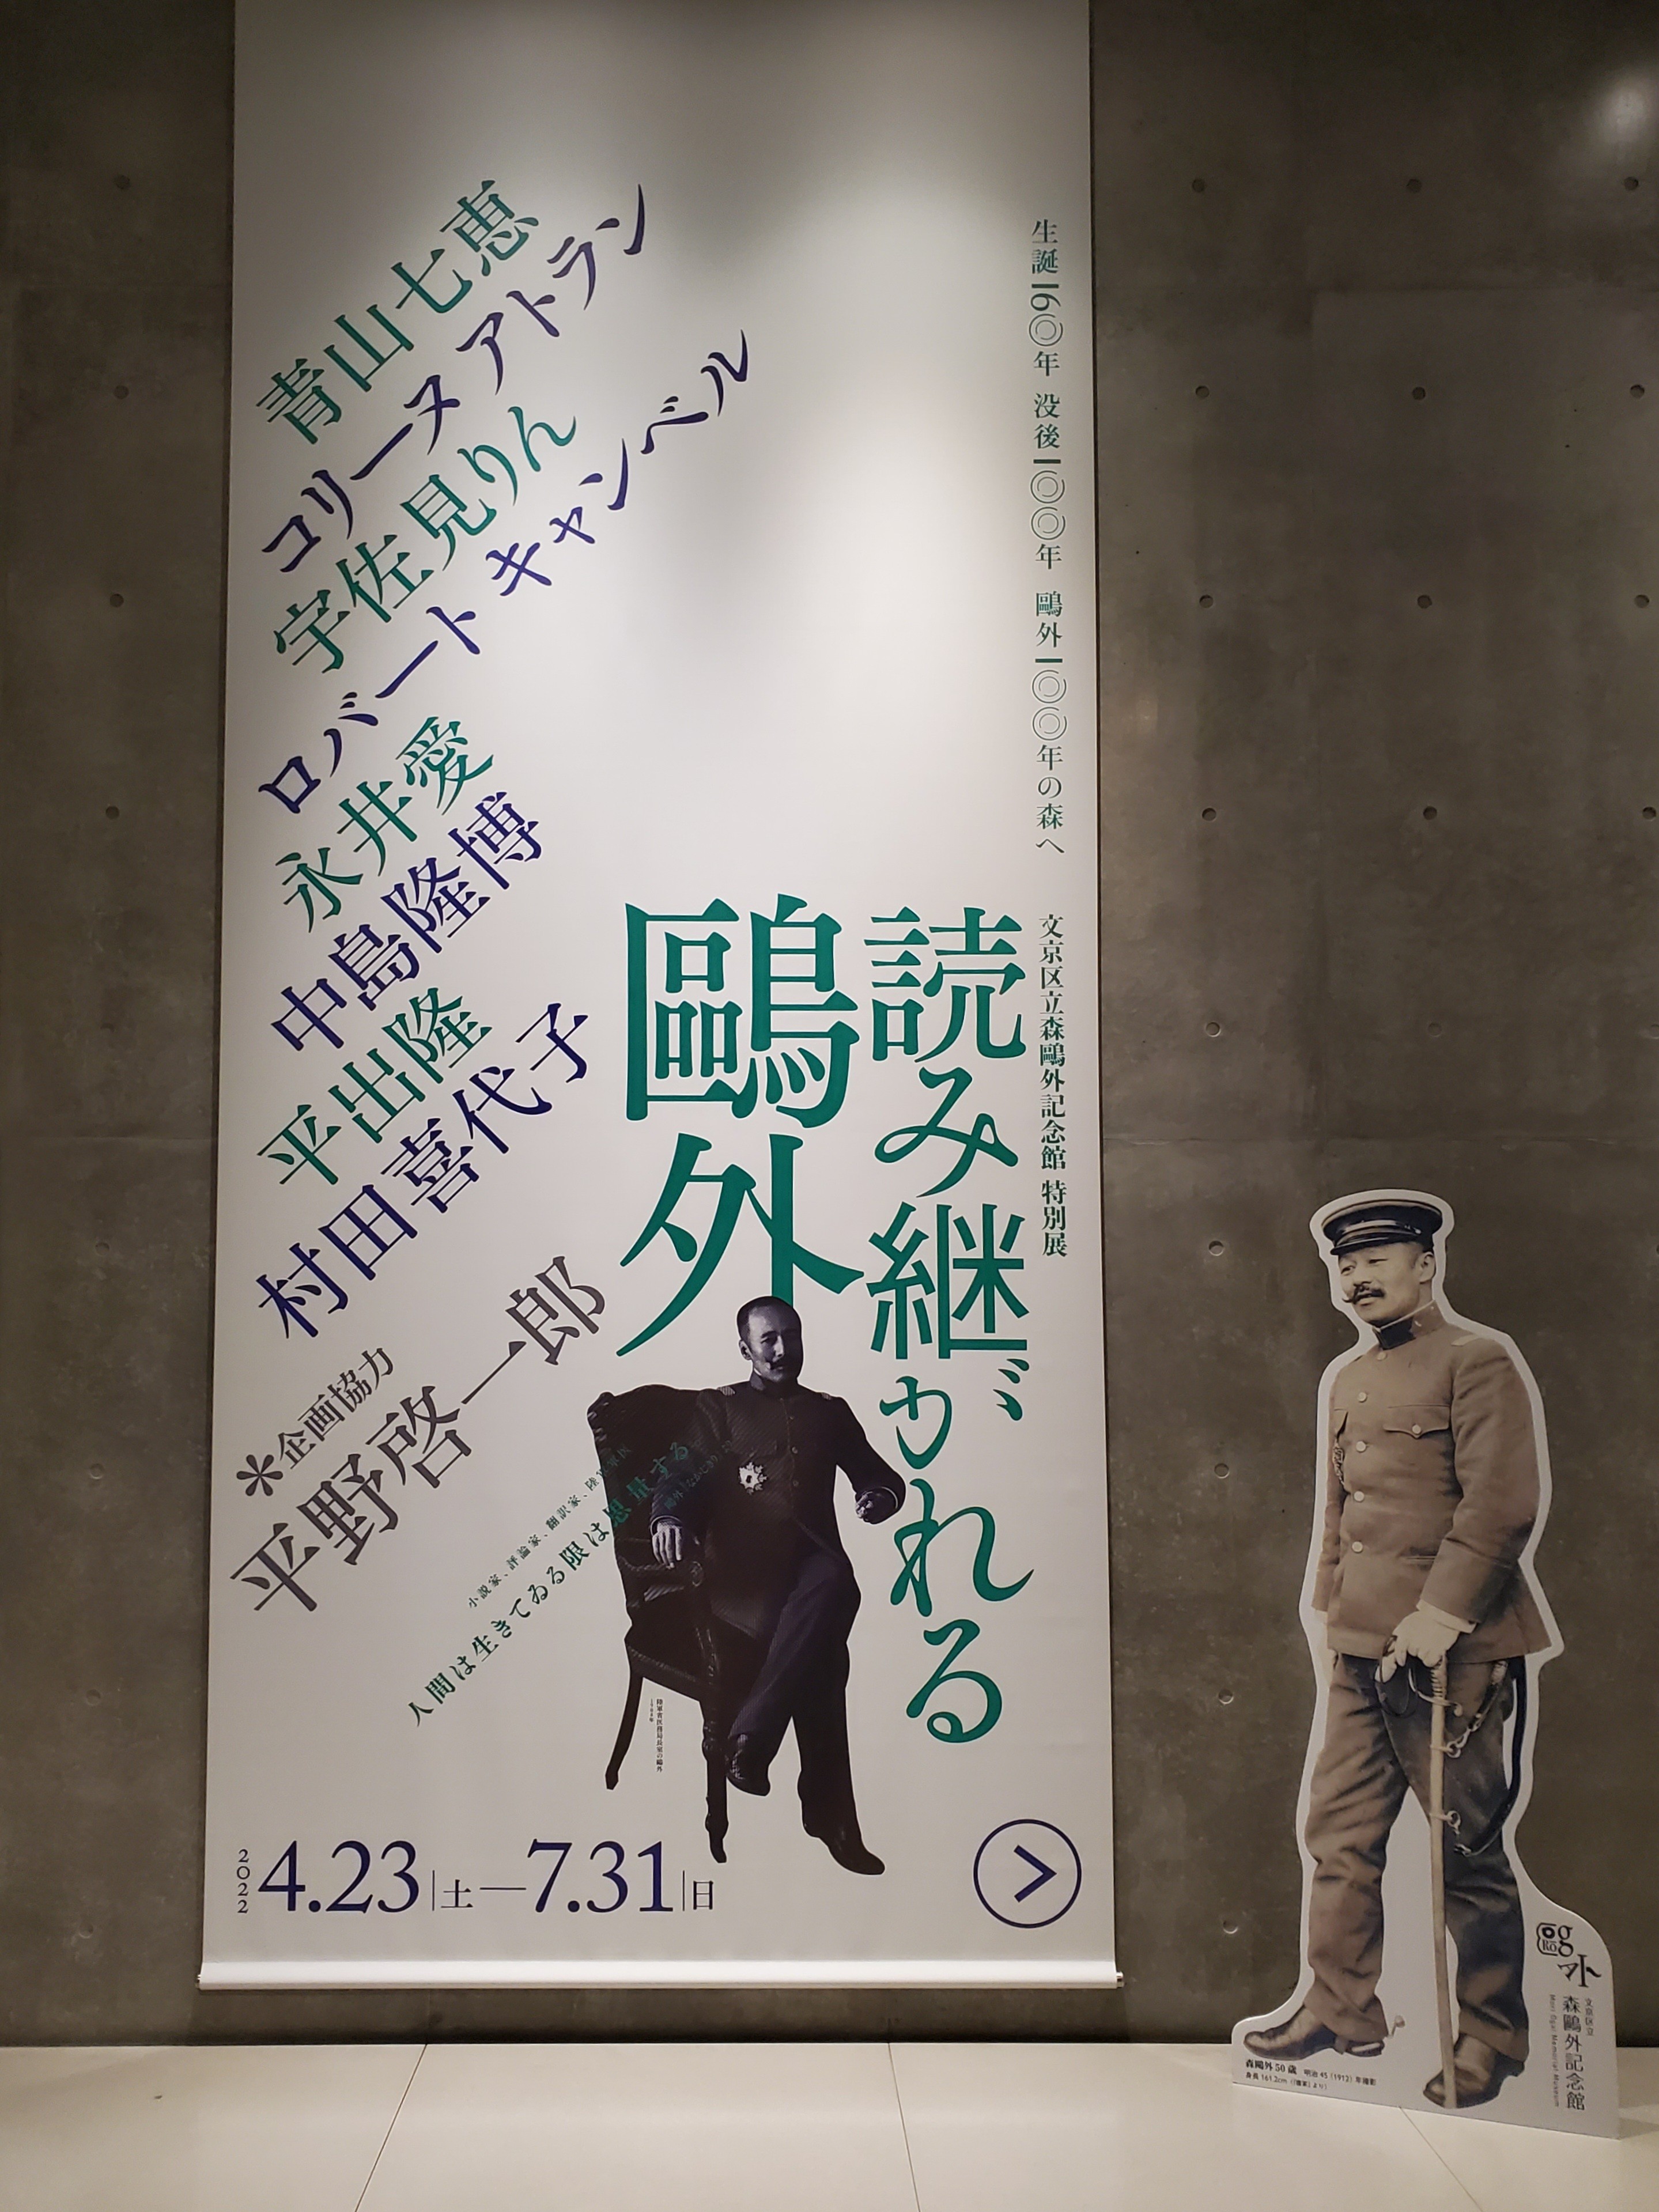 生誕160年 没後100年 鷗外100年の森へ
文京区立森鷗外記念館 特別展
読み継がれる
鷗外
青山七恵
コリーヌ アトラン
宇佐見りん
ロバート キャンベル
永井愛
中島隆博
平出隆
村田喜代子
*企画協力
平野啓一郎
小説家、評論家、翻訳家、陸軍軍医
人間は生きてゐる限は思量する
陸軍省医務局長室の鷗外
2022 4.23|土—7.31|日
鷗外
文京区立
森鷗外記念館
Mori Ogai Memorial Museum
森鷗外50歳 明治45(1912)年撮影
身長161.2cm